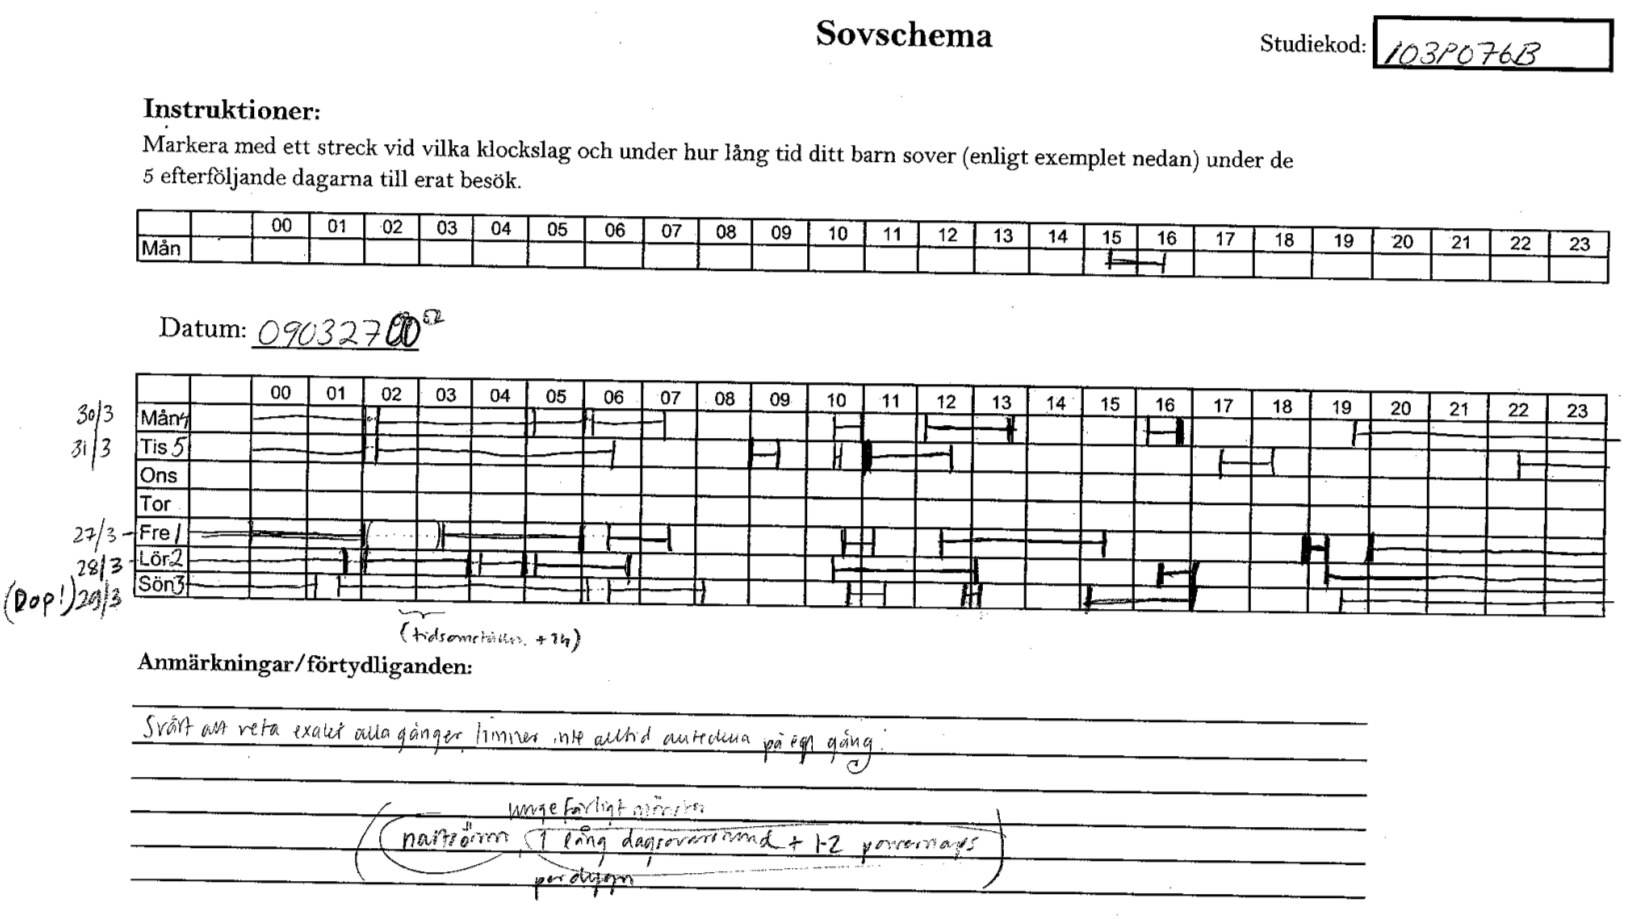 Sovschema
Studiekod: 103P076B
Instruktioner:
Markera med ett streck vid vilka klockslag och under hur lång tid ditt barn sover (enligt exemplet nedan) under de
5 efterföljande dagarna till erat besök.
00 01 02 03 04 05 06 07 08 09 10 11 12 13 14 15 16 17 18 19 20 21 22 23
Mån
Datum: 090327
00 01 02 03 04 05 06 07 08 09 10 11 12 13 14 15 16 17 18 19 20 21 22 23
30/3 Mån 4
31/3 Tis 5
Ons
Tor
27/3 - Fre 1
28/3 - Lör 2
(Dop!) 29/3 Sön 3
+ 1h)
Anmärkningar/förtydliganden:
Svårt att veta exakt alla gånger, hinner inte alltid anteckna på en gång.
ungefärligt mönster
(nattsömn, 1 lång dagsovarstund + 1-2 powernaps)
per dygn